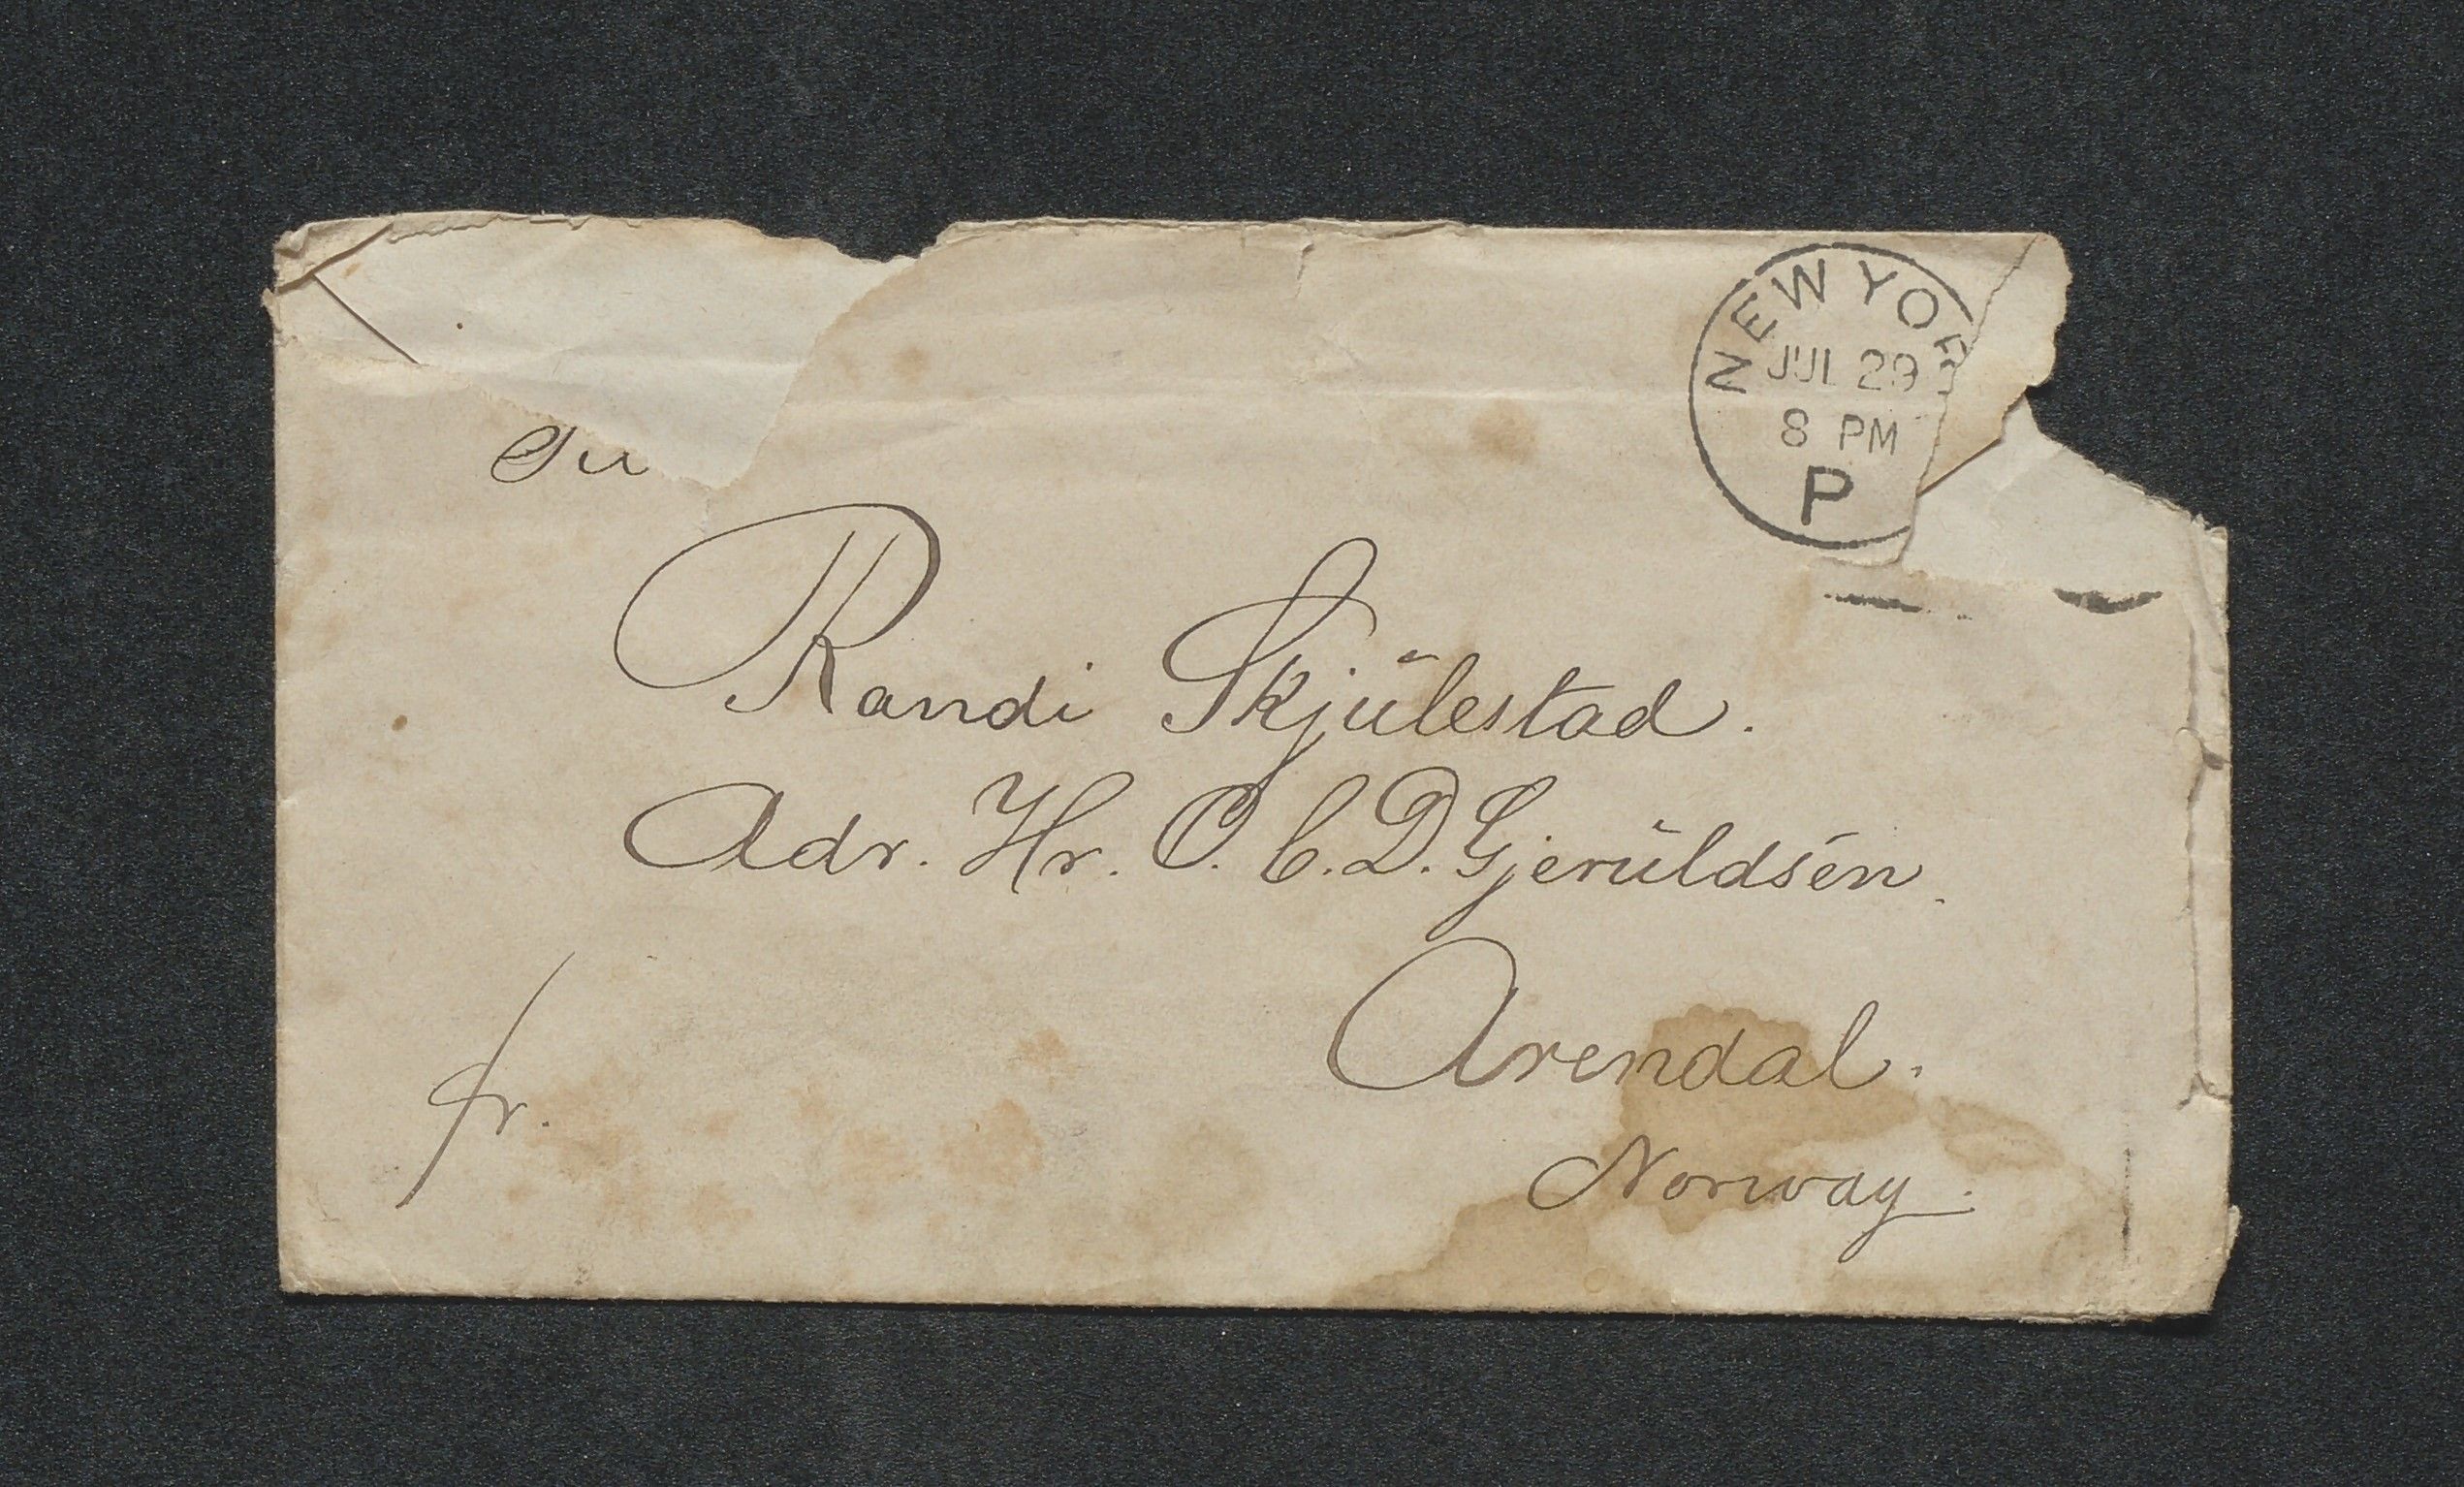 NEW YOR
JUL 29
8 PM
P
Randi Skjŭlestad.
Adr. Hr. O. C. D. Gjerŭldsen.
Arendal.
fr.
Norway.